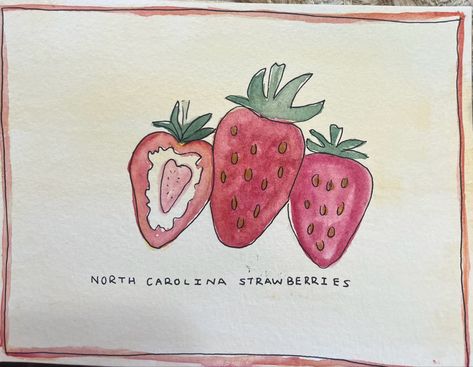 NORTH CAROLINA STRAWBERRIES